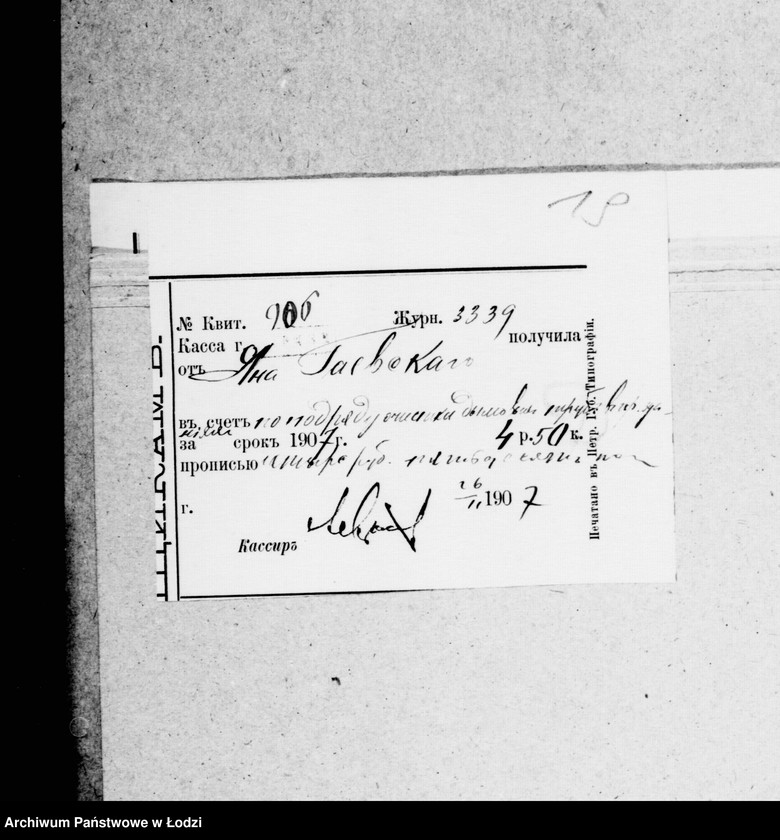 19
№ Квит. 906 Журн. 3339
Касса г. получила
отъ Яна Гаевскаго
въ счетъ по подряду очистки дымовыхъ трубъ
за срокъ 1907 г. 4 р. 50 к.
прописью четыре руб. пятьдесятъ коп
г. 26/II 1907
Кассиръ
Печатано въ Петр. Губ. Типографіи.
Archiwum Państwowe w Łodzi